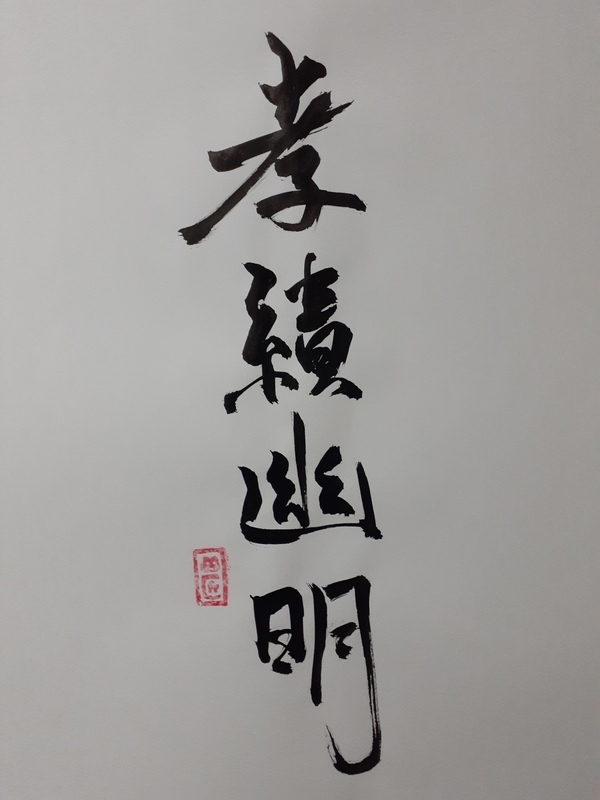 孝績幽明